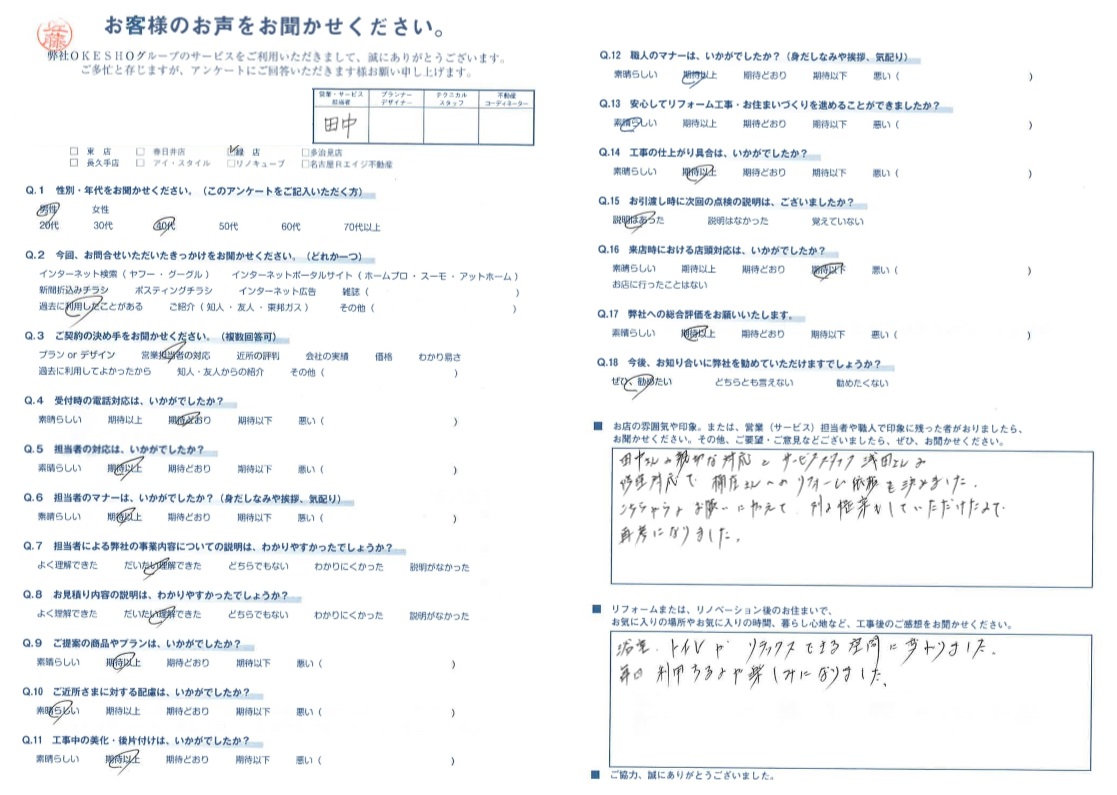 佐藤
お客様のお声をお聞かせください。
弊社OKESHOグループのサービスをご利用いただきまして、誠にありがとうございます。
ご多忙と存じますが、アンケートにご回答いただきます様お願い申し上げます。
営業・サービス担当者 プランナーデザイナー テクニカルスタッフ 不動産コーディネーター
田中
□ 東 店 □ 春日井店 ☑緑 店 □多治見店
□ 長久手店 □ アイ・スタイル □リノキューブ □名古屋Rエイジ不動産
Q.1 性別・年代をお聞かせください。（このアンケートをご記入いただく方）
男性 女性
20代 30代 40代 50代 60代 70代以上
Q.2 今回、お問合せいただいたきっかけをお聞かせください。（どれか一つ）
インターネット検索（ ヤフー ・ グーグル ） インターネットポータルサイト（ ホームプロ ・ スーモ ・ アットホーム ）
新聞折込みチラシ ポスティングチラシ インターネット広告 雑誌（ ）
過去に利用したことがある ご紹介（ 知人 ・ 友人 ・ 東邦ガス ） その他（ ）
Q.3 ご契約の決め手をお聞かせください。（複数回答可）
プラン or デザイン 営業担当者の対応 近所の評判 会社の実績 価格 わかり易さ
過去に利用してよかったから 知人・友人からの紹介 その他（ ）
Q.4 受付時の電話対応は、いかがでしたか？
素晴らしい 期待以上 期待どおり 期待以下 悪い（ ）
Q.5 担当者の対応は、いかがでしたか？
素晴らしい 期待以上 期待どおり 期待以下 悪い（ ）
Q.6 担当者のマナーは、いかがでしたか？（身だしなみや挨拶、気配り）
素晴らしい 期待以上 期待どおり 期待以下 悪い（ ）
Q.7 担当者による弊社の事業内容についての説明は、わかりやすかったでしょうか？
よく理解できた だいたい理解できた どちらでもない わかりにくかった 説明がなかった
Q.8 お見積り内容の説明は、わかりやすかったでしょうか？
よく理解できた だいたい理解できた どちらでもない わかりにくかった 説明がなかった
Q.9 ご提案の商品やプランは、いかがでしたか？
素晴らしい 期待以上 期待どおり 期待以下 悪い（ ）
Q.10 ご近所さまに対する配慮は、いかがでしたか？
素晴らしい 期待以上 期待どおり 期待以下 悪い（ ）
Q.11 工事中の美化・後片付けは、いかがでしたか？
素晴らしい 期待以上 期待どおり 期待以下 悪い（ ）
Q.12 職人のマナーは、いかがでしたか？（身だしなみや挨拶、気配り）
素晴らしい 期待以上 期待どおり 期待以下 悪い（ ）
Q.13 安心してリフォーム工事・お住まいづくりを進めることができましたか？
素晴らしい 期待以上 期待どおり 期待以下 悪い（ ）
Q.14 工事の仕上がり具合は、いかがでしたか？
素晴らしい 期待以上 期待どおり 期待以下 悪い（ ）
Q.15 お引渡し時に次回の点検の説明は、ございましたか？
説明はあった 説明はなかった 覚えていない
Q.16 来店時における店頭対応は、いかがでしたか？
素晴らしい 期待以上 期待どおり 期待以下 悪い（ ）
お店に行ったことはない
Q.17 弊社への総合評価をお願いいたします。
素晴らしい 期待以上 期待どおり 期待以下 悪い（ ）
Q.18 今後、お知り合いに弊社を勧めていただけますでしょうか？
ぜひ、勧めたい どちらとも言えない 勧めたくない
■ お店の雰囲気や印象。または、営業（サービス）担当者や職人で印象に残った者がおりましたら、
お聞かせください。その他、ご要望・ご意見などございましたら、ぜひ、お聞かせください。
田中さんの親切な対応とサービススタッフ浅田さんの
修理対応で桶庄さんへのリフォーム依頼を決めました。
こちらからのお願いに加えて、別の提案もしていただけたので
参考になりました。
■ リフォームまたは、リノベーション後のお住まいで、
お気に入りの場所やお気に入りの時間、暮らし心地など、工事後のご感想をお聞かせください。
浴室、トイレがリラックスできる空間に変わりました。
毎日利用するのが楽しみになりました。
■ ご協力、誠にありがとうございました。